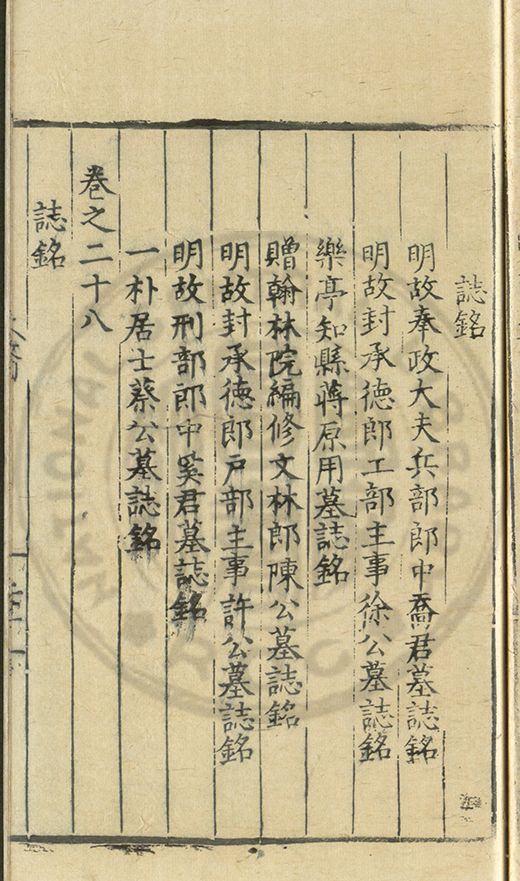 誌銘
明故奉政大夫兵部郎中喬君墓誌銘
明故封承德郎工部主事徐公墓誌銘
樂亭知縣蔣原用墓誌銘
贈翰林院編修文林郎陳公墓誌銘
明故封承德郎戶部主事許公墓誌銘
明故刑部郎中奚君墓誌銘
一朴居士蔡公墓誌銘
卷之二十八
誌銘